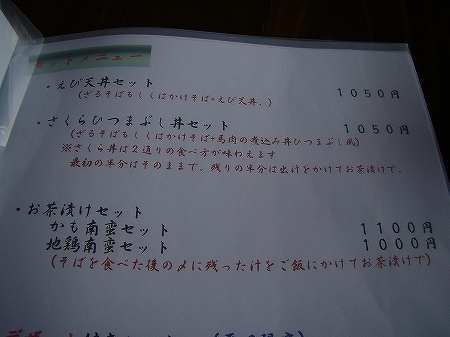 セットメニュー
・えび天丼セット 1050円
(ざるそばもしくはかけそば+えび天丼。)
・さくらひつまぶし丼セット 1050円
(ざるそばもしくはかけそば+馬肉の煮込み丼ひつまぶし風)
※さくら丼は2通りの食べ方が味わえます
最初の半分はそのままで、残りの半分は出汁をかけてお茶漬けで。
・お茶漬けセット
かも南蛮セット 1100円
地鶏南蛮セット 1000円
(そばを食べた後の〆に残った汁をご飯にかけてお茶漬けで)